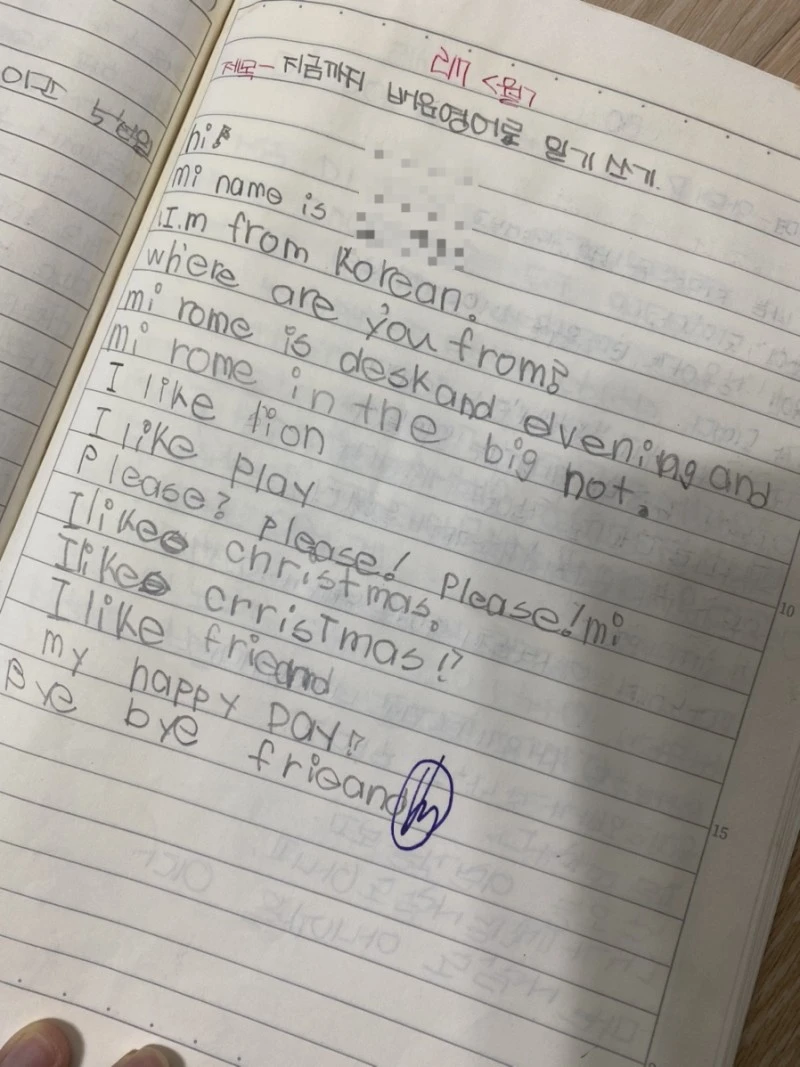 2/17 <월>
제목- 지금까지 배운영어로 일기 쓰기.
hi♪
mi name is
I.m from Korean.
where are you from?
mi rome is desk and elvening and
mi rome in the big hot.
I like lion
I like play
Please? Please! Please! mi
I like christmas.
I like crristmas!?
I like frieand
my happy Day!?
Bye bye frieand
10
15